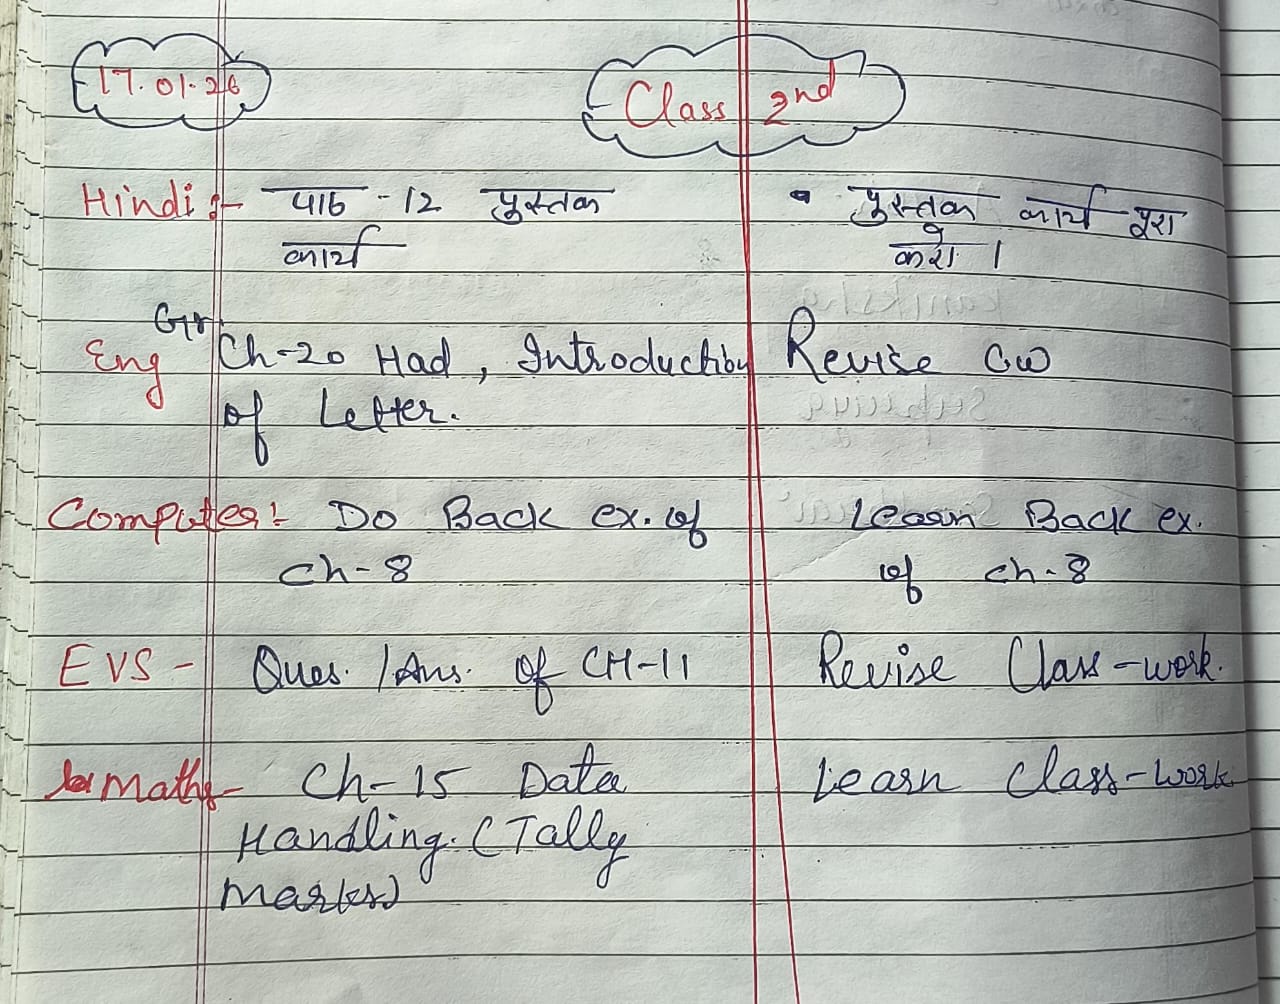 17.01.26
Class 2nd
Hindi :- पाठ - 12 पुस्तक
कार्य
• पुस्तक कार्य पूरा
करे।
Gr.
Eng Ch-20 Had, Introduction
of Letter.
Revise CW
Computer:- Do Back ex. of
ch-8
Learn Back ex.
of ch-8
EVS - Ques. / Ans. of CH-11
Revise Class-work.
Maths- Ch-15 Data
Handling. (Tally
marks)
Learn Class-work